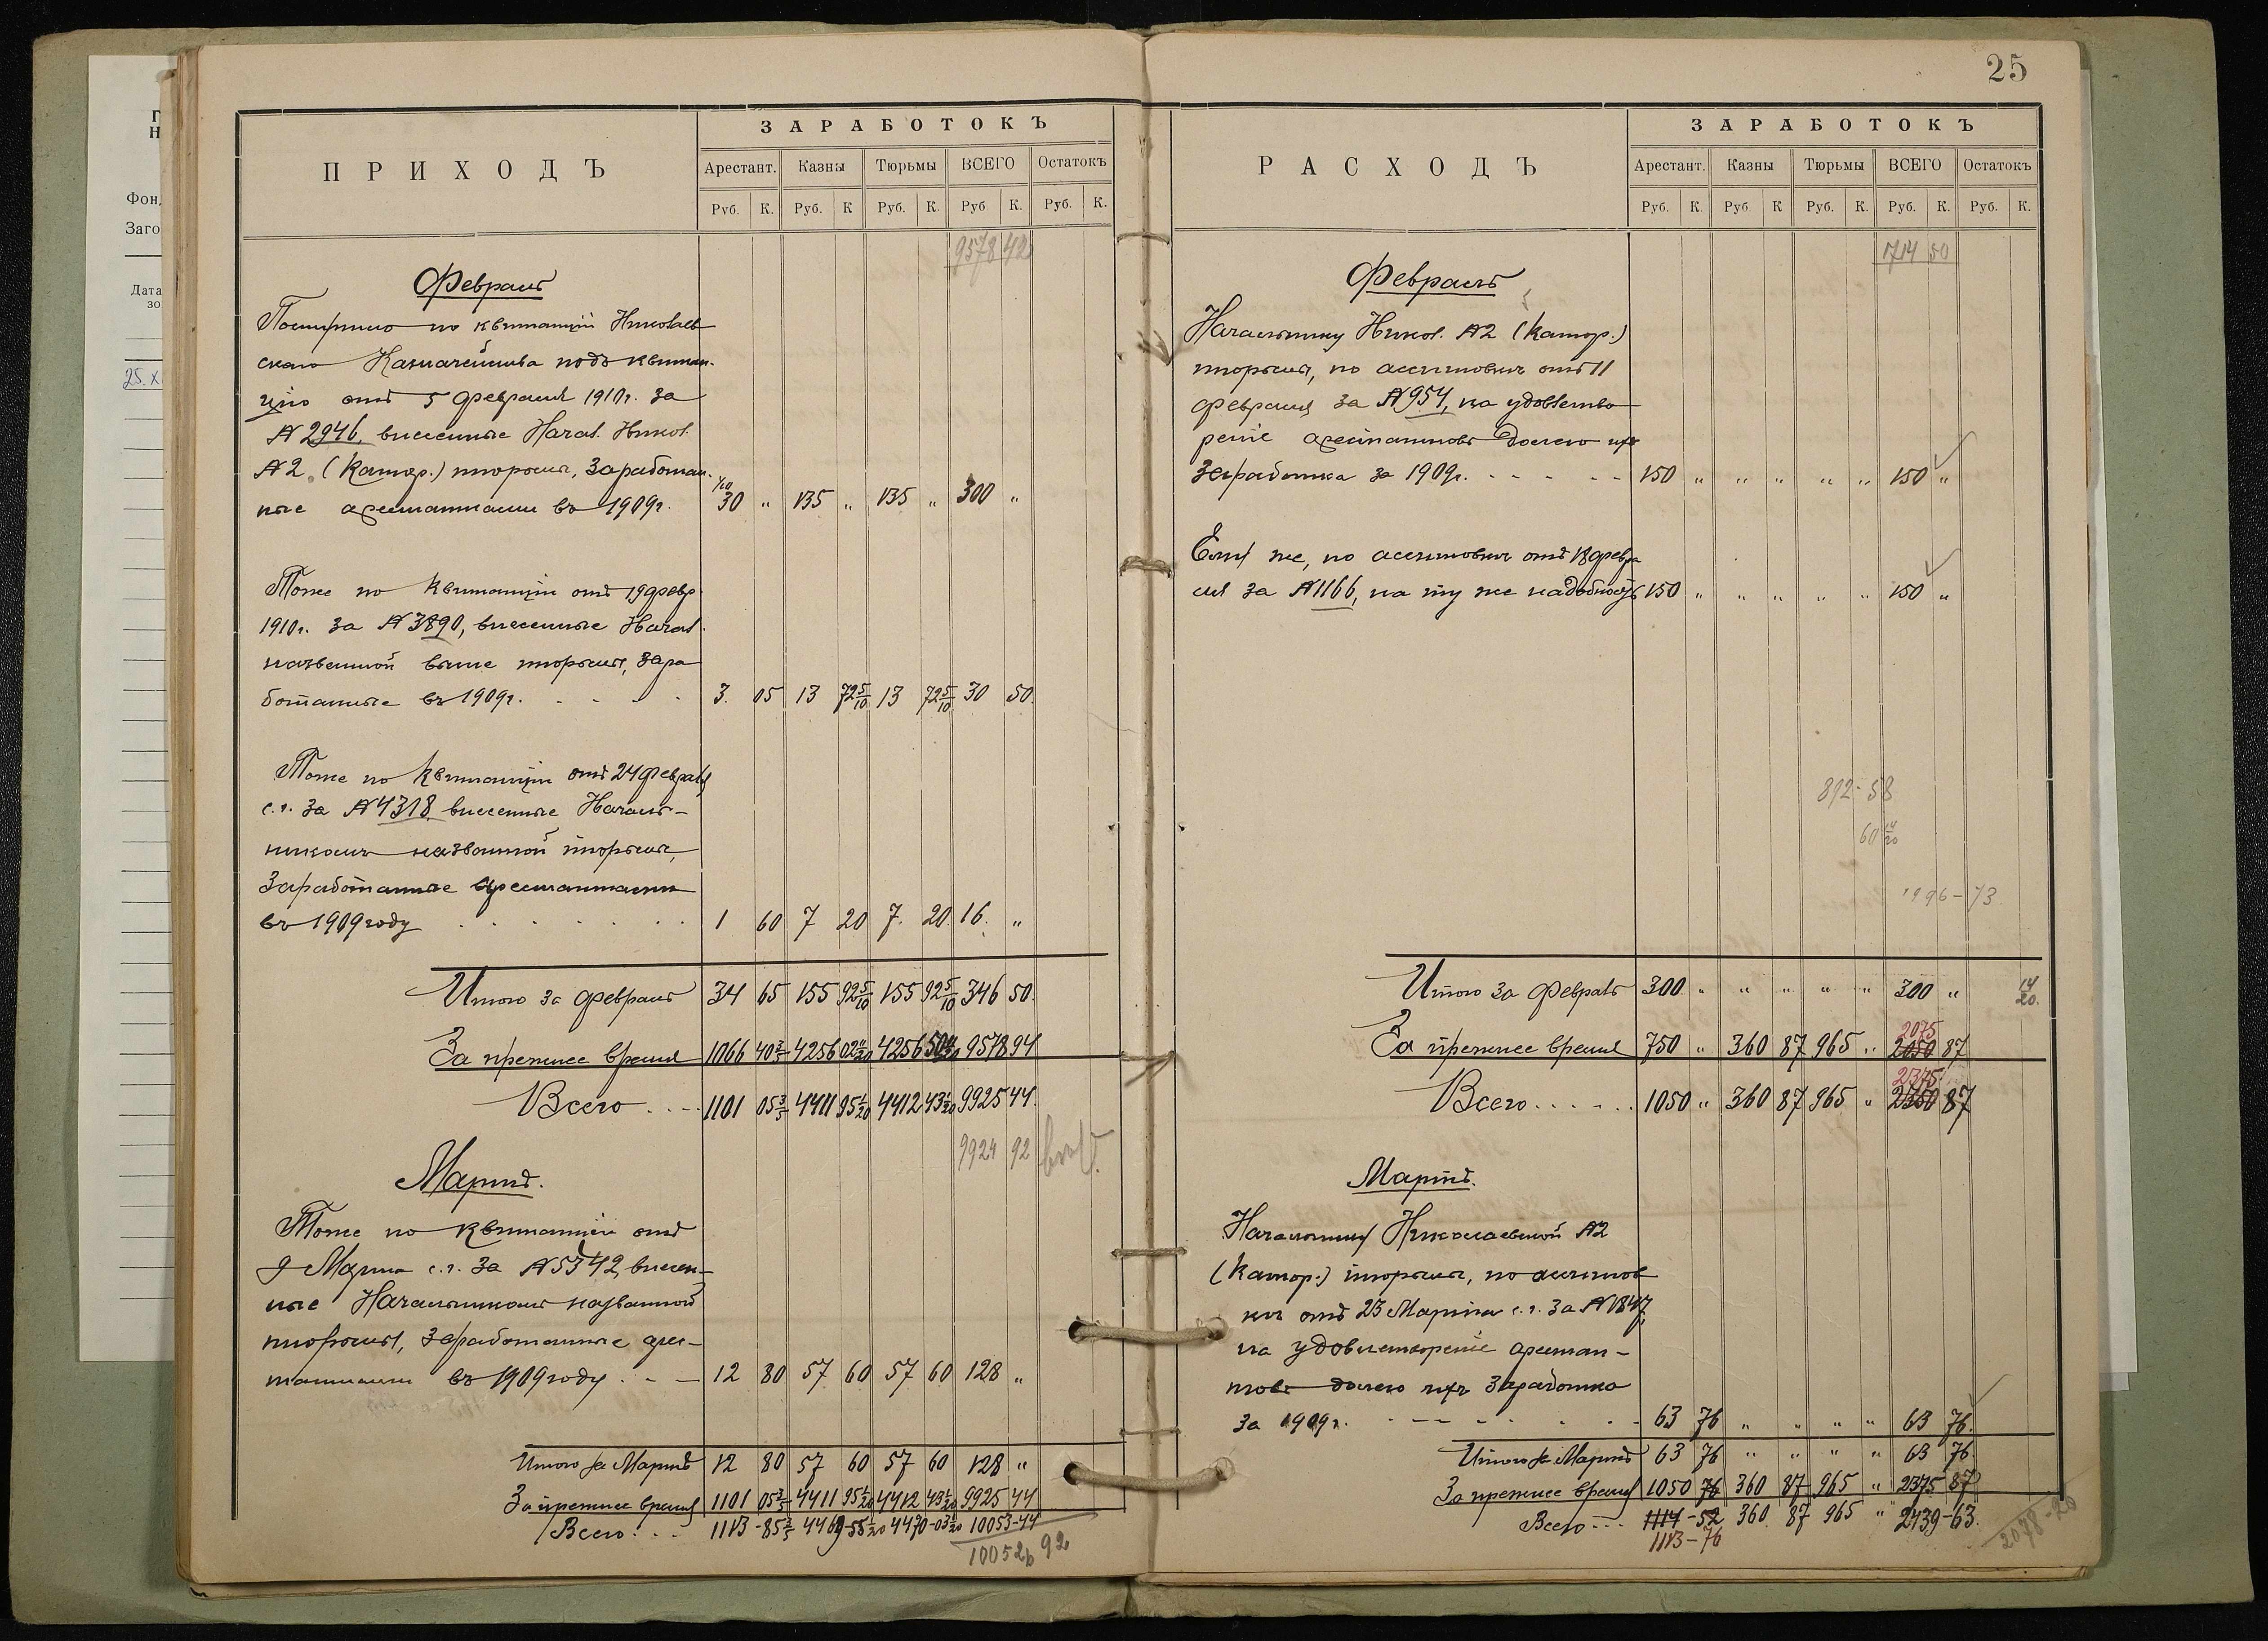 25
Г
Н
Фон
Заго
Дата
зо
25. X
ПРИХОДЪ
ЗАРАБОТОКЪ
Арестант. Казны Тюрьмы ВСЕГО Остатокъ
Руб. К. Руб. К Руб. К. Руб К. Руб. К.
9578 42
Февраль
Поступило по квитанціи Николаев
скаго Казначейства подъ квитан-
цію отъ 5 февраля 1910г. за
№ 2946, внесенные Начал. Никол.
№ 2 (Катор.) тюрьмы, заработан-
ные арестантами въ 1909г. 1/10 30 " 135 " 135 " 300 "
Тоже по квитанціи отъ 19 февр.
1910г. за № 3890, внесенные Начал.
названной выше тюрьмы, зара
ботанные въ 1909г. . . . . 3. 05 13 72 5/10 13 72 5/10 30 50.
Тоже по квитанціи отъ 24 февраля
с.г. за № 4318 внесенные Началь-
никомъ названной тюрьмы,
заработанные арестантами
въ 1909 году . . . . . . . 1 60 7 20 7. 20. 16. "
Итого за февраль 34 65 155 92 5/10 155 92 5/10 346 50.
За прежнее время 1066 40 3/5 4256 02 11/20 4256 50 9578 94
Всего . . - 1101 05 3/5 4411 95 1/20 4412 43 1/20 9925 44.
9924 92
Мартъ.
Тоже по квитанціи отъ
9 Марта с.г. за № 5342, внесен-
ные Начальникомъ названной
тюрьмы, заработанные арес-
тантами въ 1909 году . - - 12 80 57 60 57 60 128 "
Итого за Мартъ 12 80 57 60 57 60 128 "
За прежнее время 1101 05 3/5 4411 95 1/20 4412 43 1/20 9925 44
Всего . . - 1113 - 85 3/5 4469 - 55 1/20 4470 - 03 1/20 10053 - 44
10052 92
РАСХОДЪ
ЗАРАБОТОКЪ
Арестант. Казны Тюрьмы ВСЕГО Остатокъ
Руб. К. Руб К Руб. К. Руб. К. Руб. К.
1714 50
Февраль
Начальнику Никол. № 2 (Катор.)
тюрьмы, по ассигновкѣ отъ 11
февраля за № 954, на удовлетво
реніе арестантовъ долею ихъ
заработка за 1909г. - - - - - 150 " " " " " 150 "
Ему же, по ассигновкѣ отъ 18 февра
ля за № 1166, на ту же надобность 150 " " " " " 150 "
812 - 58
60 14/20
1996 - 73
Итого за Февраль 300 " " " " " 300 " 14/20.
2075
За прежнее время 750 " 360 87 965 " 2050 87
2375
Всего . . . . . . 1050 " 360 87 965 " 2350 87
Мартъ.
Начальнику Николаевской № 2
(Катор.) тюрьмы, по ассигнов
кѣ отъ 23 Марта с.г. за № 1847,
на удовлетвореніе арестан-
товъ долею ихъ заработка
за 1909г. - - - - - - - 63 76 " " " " 63 76.
Итого за Мартъ 63 76 " " " " 63 76
За прежнее время 1050 76 360 87 965 " 2375 87
Всего - - - 1114 - 52 360 87 965 " 2439 - 63.
1113 - 76
2078 - 20